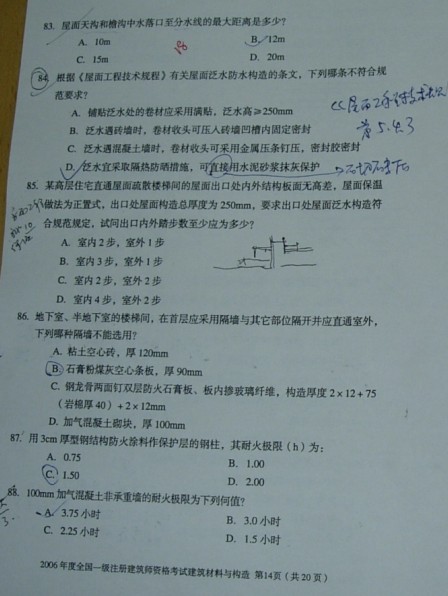 83. 屋面天沟和檐沟中水落口至分水线的最大距离是多少？
A. 10m B. 12m
C. 15m D. 20m
84. 根据《屋面工程技术规程》有关屋面泛水防水构造的条文，下列哪条不符合规
范要求？
A. 铺贴泛水处的卷材应采用满贴，泛水高≥250mm
B. 泛水遇砖墙时，卷材收头可压人砖墙凹槽内固定密封
C. 泛水遇混凝土墙时，卷材收头可采用金属压条钉压，密封胶密封
D. 泛水宜采取隔热防晒措施，可直接用水泥砂浆抹灰保护
第5.4.3
85. 某高层住宅直通屋面疏散楼梯间的屋面出口处内外结构板面无高差，屋面保温
做法为正置式，出口处屋面构造总厚度为 250mm，要求出口处屋面泛水构造符
合规范规定，试问出口内外踏步数至少应为多少？
A. 室内 2 步，室外 1 步
B. 室内 3 步，室外 1 步
C. 室内 2 步，室外 2 步
D. 室内 4 步，室外 2 步
86. 地下室、半地下室的楼梯间，在首层应采用隔墙与其它部位隔开并应直通室外，
下列哪种隔墙不能选用？
A. 粘土空心砖，厚 120mm
B. 石膏粉煤灰空心条板，厚 90mm
C. 钢龙骨两面钉双层防火石膏板、板内掺玻璃纤维，构造厚度 2×12+75
（岩棉厚 40）+2×12mm
D. 加气混凝土砌块，厚 100mm
87. 用 3cm 厚型钢结构防火涂料作保护层的钢柱，其耐火极限（h）为：
A. 0.75 B. 1.00
C. 1.50 D. 2.00
88. 100mm 加气混凝土非承重墙的耐火极限为下列何值？
A. 3.75 小时 B. 3.0 小时
C. 2.25 小时 D. 1.5 小时
2006 年度全国一级注册建筑师资格考试建筑材料与构造 第14页（共 20 页）